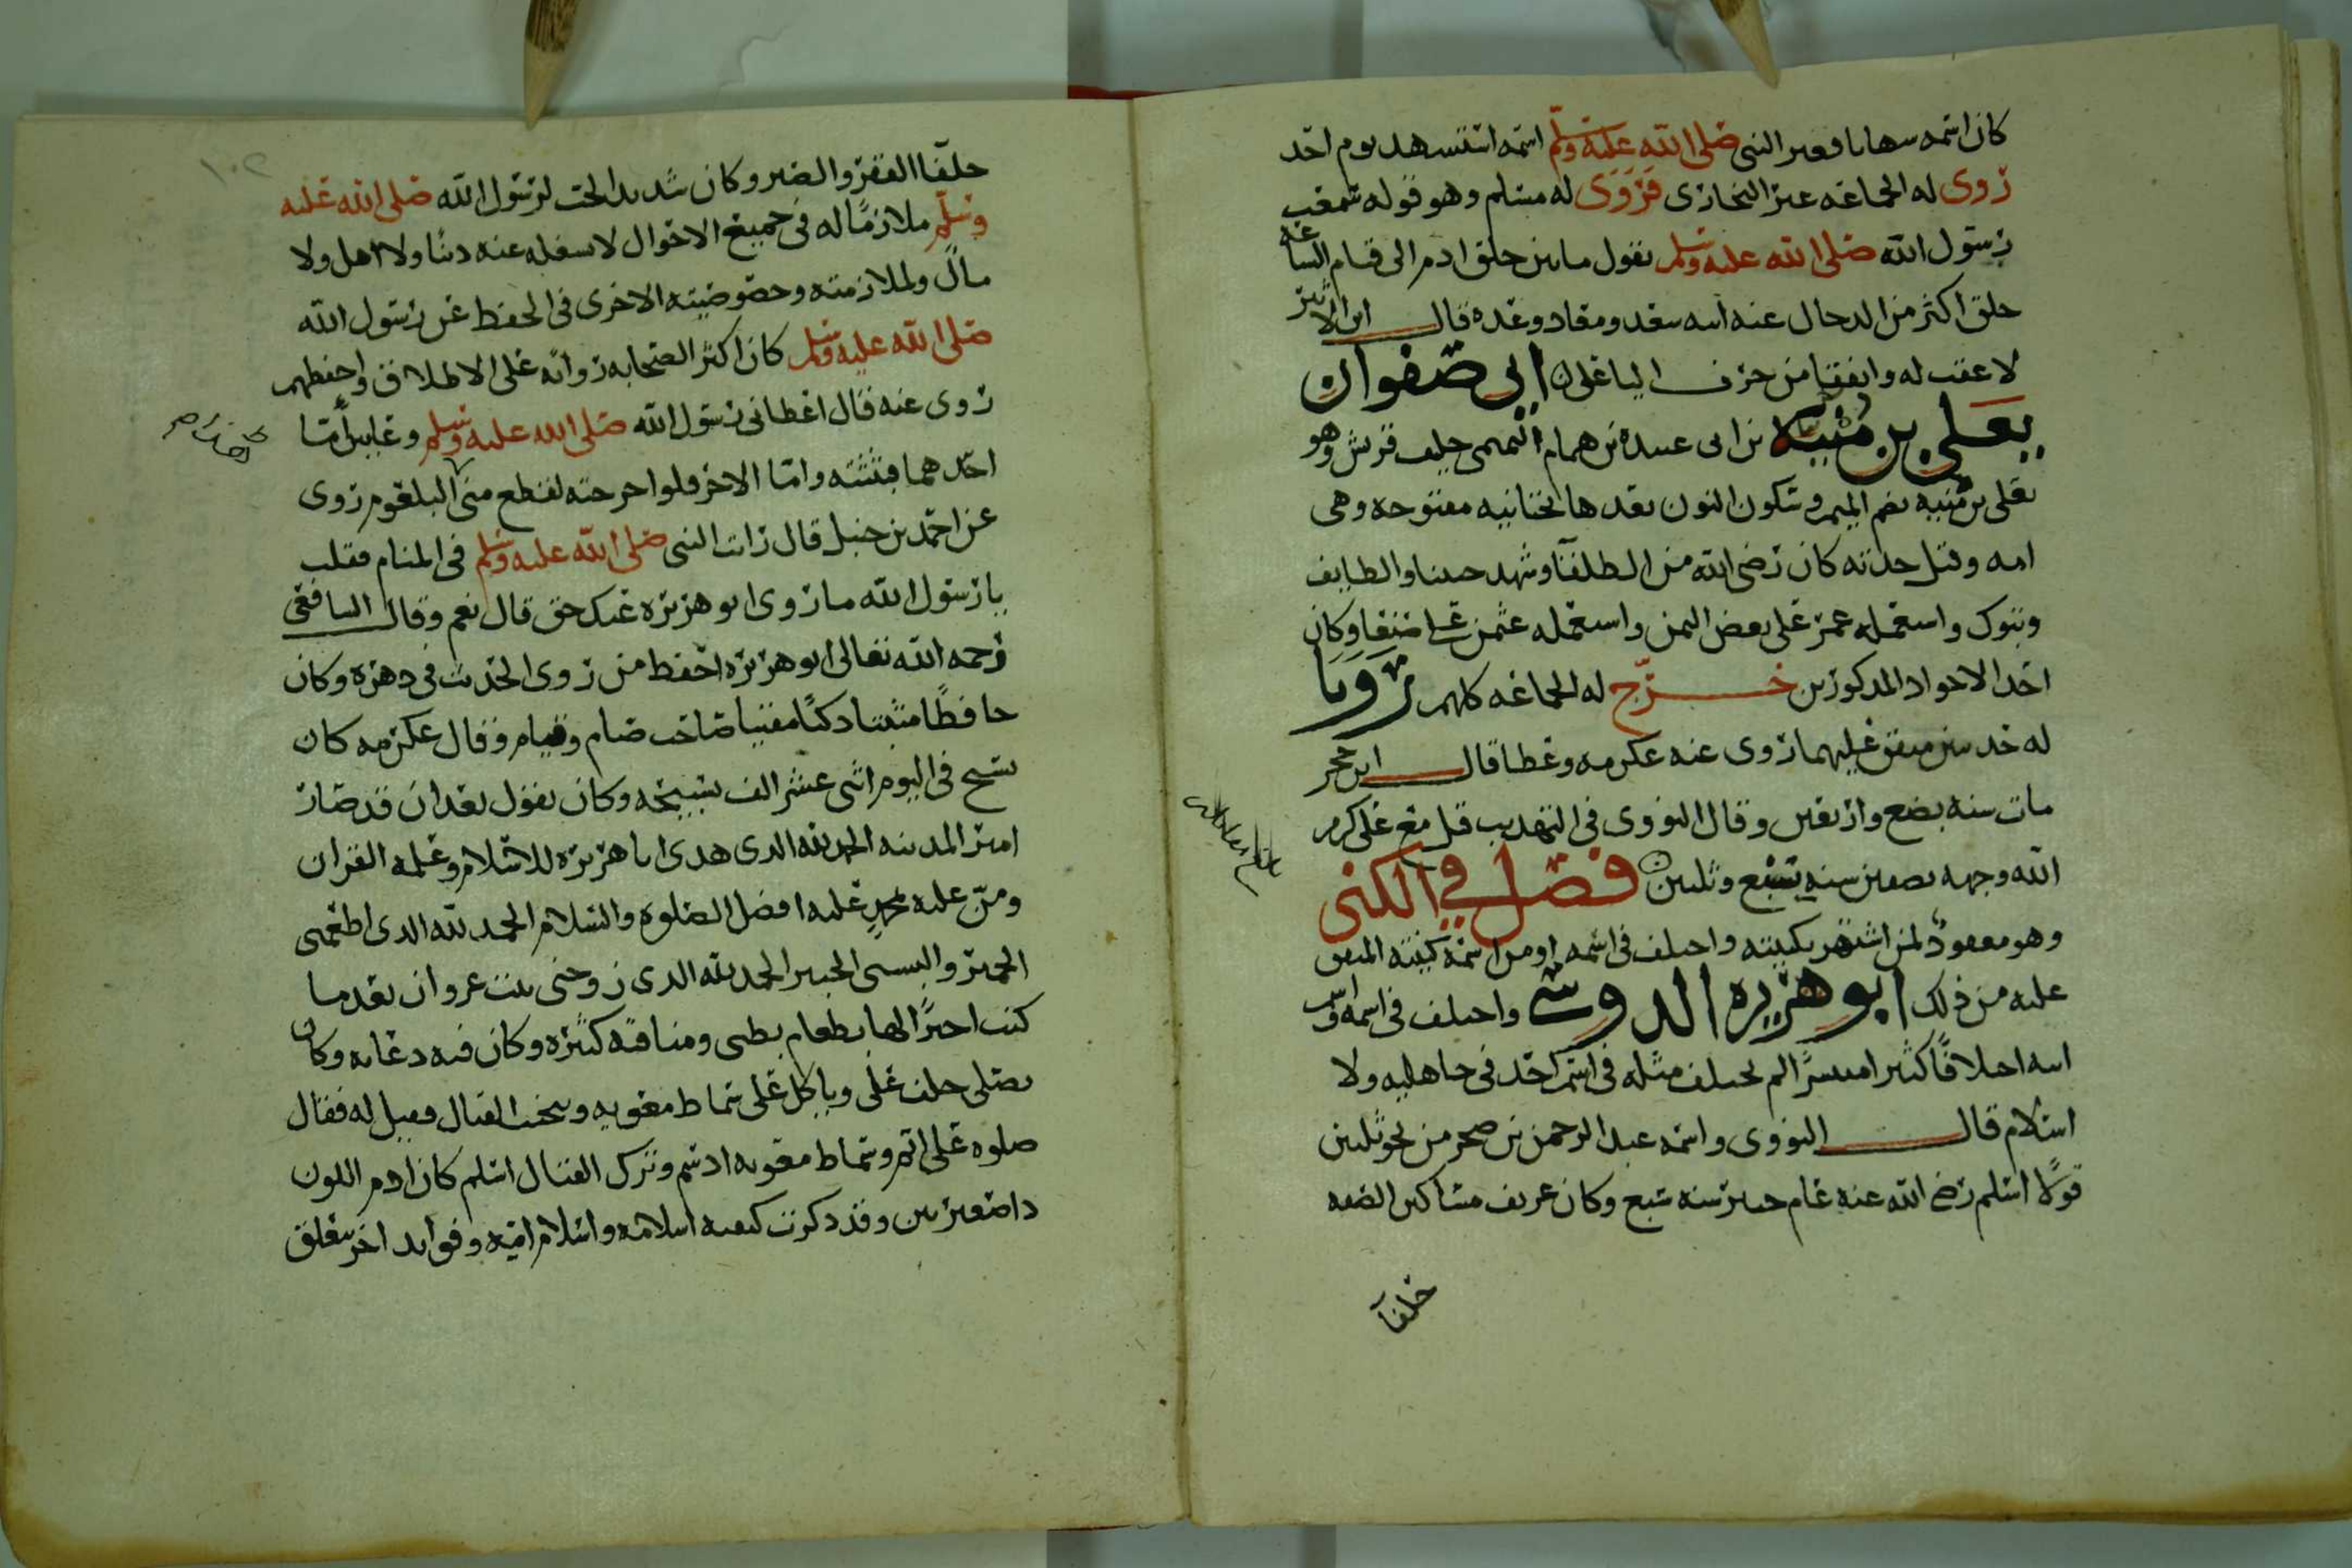 كان اسمه سهابا فغير النبي صلى الله عليه وسلم اسمه استشهد يوم احد
روى له الجماعه غير البخاري فروى له مسلم وهو قوله سمعت
رسول الله صلى الله عليه وسلم يقول ما بين خلق ادم الى قيام الساعه
خلق اكثر من الدجال عنه ابنه سعد ومعاد وغده قال ابن الاثير
لا عقب له واتفقا من حرف اليا على ابي صفوان
يعلى بن منيه بن ابي عبيده بن همام التميمى حليف قريش وهو
يعلى بن منيه بضم الميم وسكون النون بعدها تحتانيه مفتوحه وهي
امه وقيل جدته كان رضي الله من الطلقا وشهد حنينا والطايف
وتبوك واستعمله عمر على بعض اليمن واستعمله عثمن على صنعا وكان
احد الاجواد المدكورين خرج له الجماعه كلهم رويا
له حديثين متفق عليهما روى عنه عكرمه وعطا قال ابن حجر
مات سنه بضع واربعين وقال النووي في التهديب قتل مع على كرم
الله وجهه بصفين سنه سبع وثلثين فصل في الكنى
وهو معقود لمن اشتهر بكنيته واختلف في اسمه او من اسمه كنيته المتفق
عليه من ذلك ابو هريره الدوسي واختلف في اسمه واسم
ابيه اختلافا كثيرا منتشرا لم يختلف مثله في اسم احد في جاهليه ولا
اسلام قال النووى واسمه عبد الرحمن بن صخر من نحو ثلثين
قولا اسلم رضي الله عنه عام خيبر سنه سبع وكان عريف مساكين الصفه
حلفا
حلفا الفقر والصبر وكان شديد الحب لرسول الله صلى الله عليه
وسلم ملازما له في جميع الاحوال لا يشغله عنه دنيا ولا اهل ولا
مال ولملازمته وخصوصيته الاخرى في الحفظ عن رسول الله
صلى الله عليه وسلم كان اكثر الصحابه روايه على الاطلاق واحفظهم
روى عنه قال اعطاني رسول الله صلى الله عليه وسلم وعايين اما
احدهما فبثثته واما الاخر فلو اخرجته لقطع مني البلعوم روى
عن احمد بن حنبل قال رايت النبي صلى الله عليه وسلم في المنام فقلت
يا رسول الله ما روى ابو هريره عنك حق قال نعم وقال الشافعي
رحمه الله تعالى ابو هريره احفظ من روى الحديث في دهره وكان
حافظا مثبتا دكيا مفتيا صاحب صيام وقيام وقال عكرمه كان
يسبح في اليوم اثنى عشر الف تسبيحه وكان يقول بعد ان قد صار
امير المدينه الحمد لله الدى هدى ابا هريره للاسلام وعلمه القران
ومن عليه بمحمد عليه افضل الصلوه والسلام الحمد لله الدى اطعمني
الخمير والبسني الحبير الحمد لله الدى زوجني بنت غزوان بعدما
كنت اجيرا لها بطعام بطني ومناقبه كثيره وكان فيه دعابه وكان
يصلى خلف على وياكل على سماط معويه ويجتنب القتال فقيل له فقال
صلوه على اتم وسماط معويه ادسم وترك القتال اسلم كان ادم اللون
دا ضفيرتين وقد ذكرت كيفيه اسلامه واسلام امه وفوايد اخر يتعلق